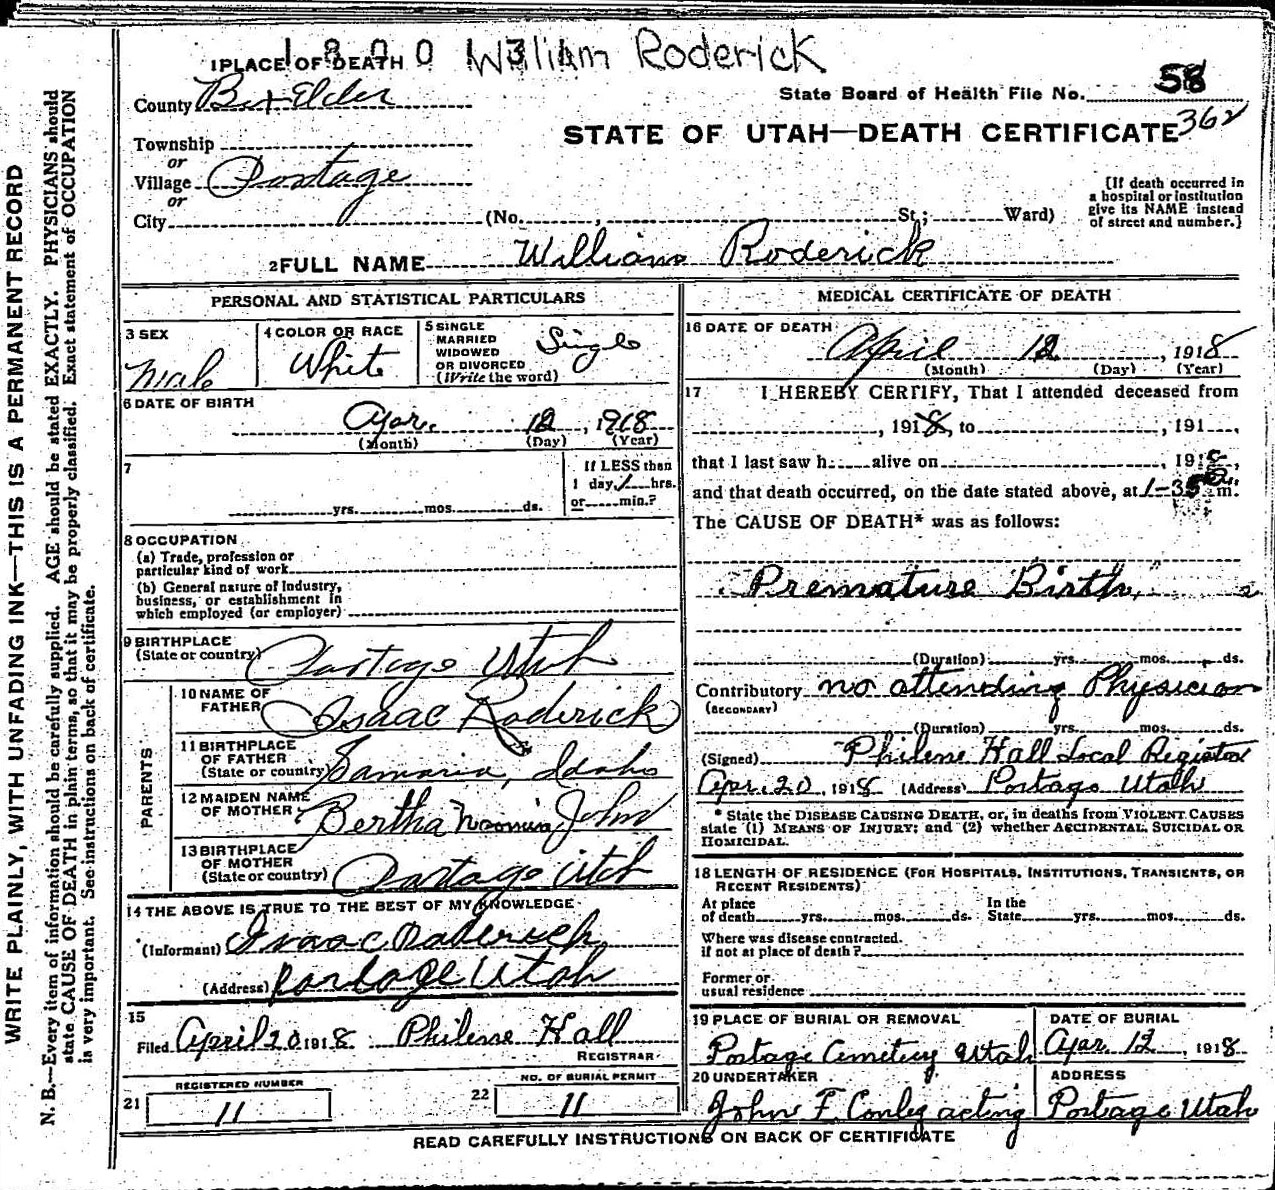 WRITE PLAINLY, WITH UNFADING INK—THIS IS A PERMANENT RECORD
N. B.—Every item of information should be carefully supplied. AGE should be stated EXACTLY. PHYSICIANS should
state CAUSE OF DEATH in plain terms, so that it may be properly classified. Exact statement of OCCUPATION
is very important. See instructions on back of certificate.
William Roderick
1 PLACE OF DEATH
County Box Elder
State Board of Health File No. 58
362
STATE OF UTAH—DEATH CERTIFICATE
Township
or
Village Portage
or
City (No. , St.; Ward)
[If death occurred in
a hospital or institution
give its NAME instead
of street and number.]
2 FULL NAME William Roderick
PERSONAL AND STATISTICAL PARTICULARS
3 SEX
Male
4 COLOR OR RACE
White
5 SINGLE
MARRIED
WIDOWED
OR DIVORCED
(Write the word)
Single
6 DATE OF BIRTH
Apr. 12, 1918
(Month) (Day) (Year)
7
yrs. mos. ds.
If LESS than
1 day, 1 hrs.
or min.?
8 OCCUPATION
(a) Trade, profession or
particular kind of work
(b) General nature of Industry,
business, or establishment in
which employed (or employer)
9 BIRTHPLACE
(State or country) Portage Utah
PARENTS
10 NAME OF
FATHER Isaac Roderick
11 BIRTHPLACE
OF FATHER
(State or country) Samaria, Idaho
12 MAIDEN NAME
OF MOTHER Bertha John
13 BIRTHPLACE
OF MOTHER
(State or country) Portage Utah
14 THE ABOVE IS TRUE TO THE BEST OF MY KNOWLEDGE
(Informant) Isaac Roderick
(Address) Portage Utah
15
Filed April 20 1918 Philene Hall
REGISTRAR
REGISTERED NUMBER
21 11
NO. OF BURIAL PERMIT
22 11
MEDICAL CERTIFICATE OF DEATH
16 DATE OF DEATH
April 12, 1918
(Month) (Day) (Year)
17 I HEREBY CERTIFY, That I attended deceased from
, 1918, to , 191 ,
that I last saw h alive on , 1918,
and that death occurred, on the date stated above, at 1-35 m.
The CAUSE OF DEATH* was as follows:
Premature Birth,
(Duration) yrs. mos. ds.
Contributory no attending Physician
(SECONDARY)
(Duration) yrs. mos. ds.
(Signed) Philene Hall Local Registrar
Apr. 20, 1918 (Address) Portage Utah
* State the DISEASE CAUSING DEATH, or, in deaths from VIOLENT CAUSES
state (1) MEANS OF INJURY; and (2) whether ACCIDENTAL, SUICIDAL OR
HOMICIDAL.
18 LENGTH OF RESIDENCE (FOR HOSPITALS, INSTITUTIONS, TRANSIENTS, OR
RECENT RESIDENTS)
At place In the
of death yrs. mos. ds. State yrs. mos. ds.
Where was disease contracted.
if not at place of death?
Former or
usual residence
19 PLACE OF BURIAL OR REMOVAL
Portage Cemetery Utah
DATE OF BURIAL
Apr 12, 1918
20 UNDERTAKER
John F. Conley acting
ADDRESS
Portage Utah
READ CAREFULLY INSTRUCTIONS ON BACK OF CERTIFICATE